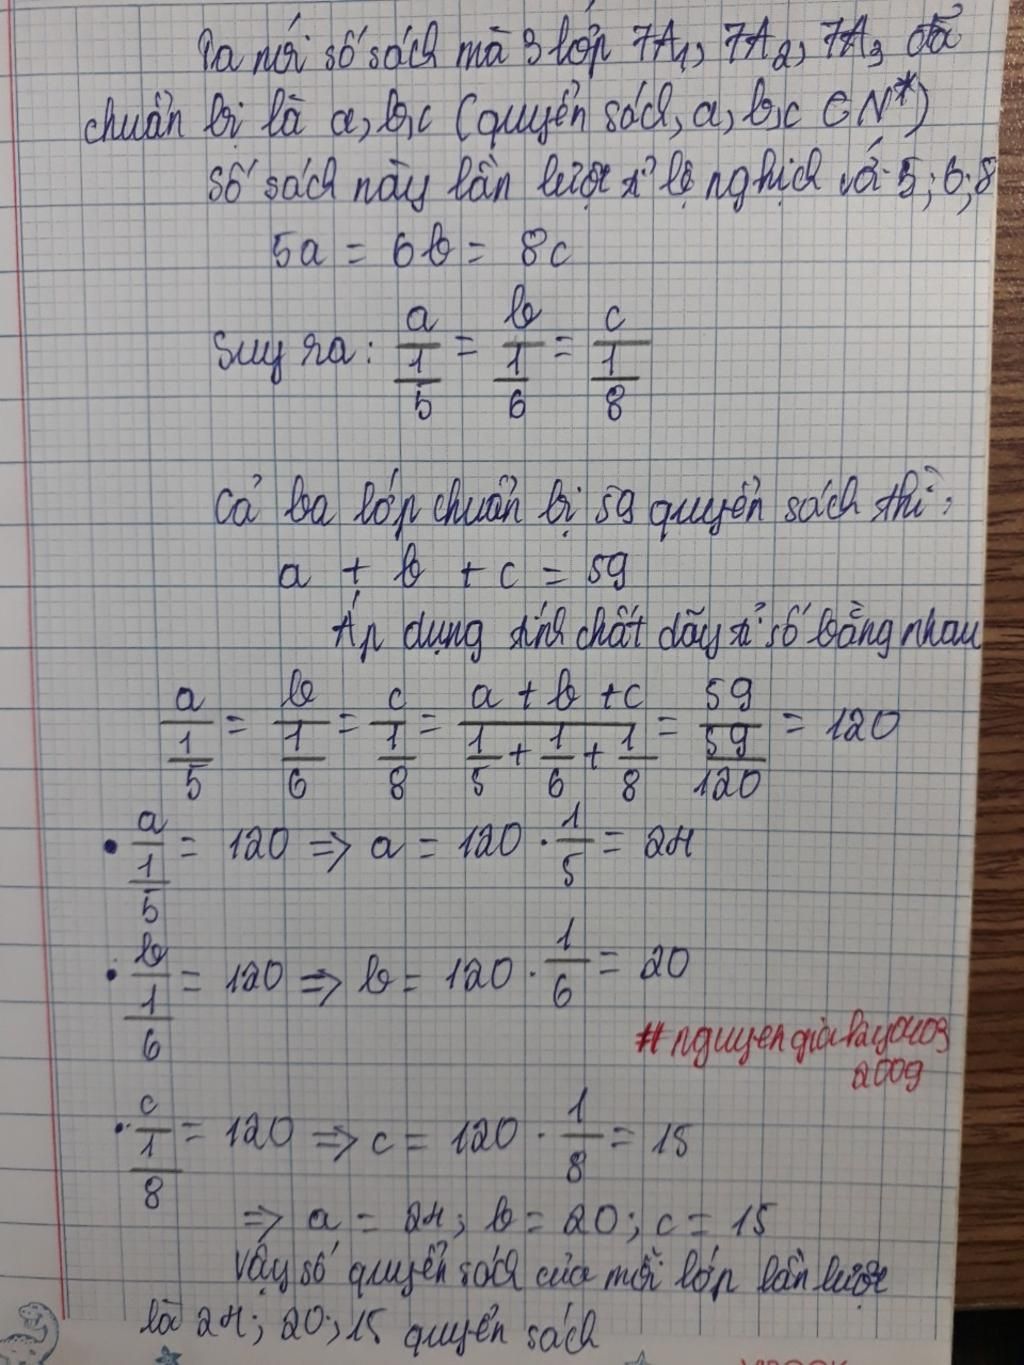 Ta nói số sách mà 3 lớp 7A1, 7A2, 7A3 đã
chuẩn bị là a, b, c (quyển sách, a, b, c ∈ N*)
Số sách này lần lượt tỉ lệ nghịch với 5; 6; 8
5a = 6b = 8c
Suy ra: a/(1/5) = b/(1/6) = c/(1/8)
Cả ba lớp chuẩn bị 59 quyển sách thì:
a + b + c = 59
Áp dụng tính chất dãy tỉ số bằng nhau
a/(1/5) = b/(1/6) = c/(1/8) = (a + b + c)/(1/5 + 1/6 + 1/8) = 59/(59/120) = 120
• a/(1/5) = 120 => a = 120 · 1/5 = 24
• b/(1/6) = 120 => b = 120 · 1/6 = 20
#nguyengiabay0403
2009
• c/(1/8) = 120 => c = 120 · 1/8 = 15
=> a = 24; b = 20; c = 15
Vậy số quyển sách của mỗi lớp lần lượt
là 24; 20; 15 quyển sách